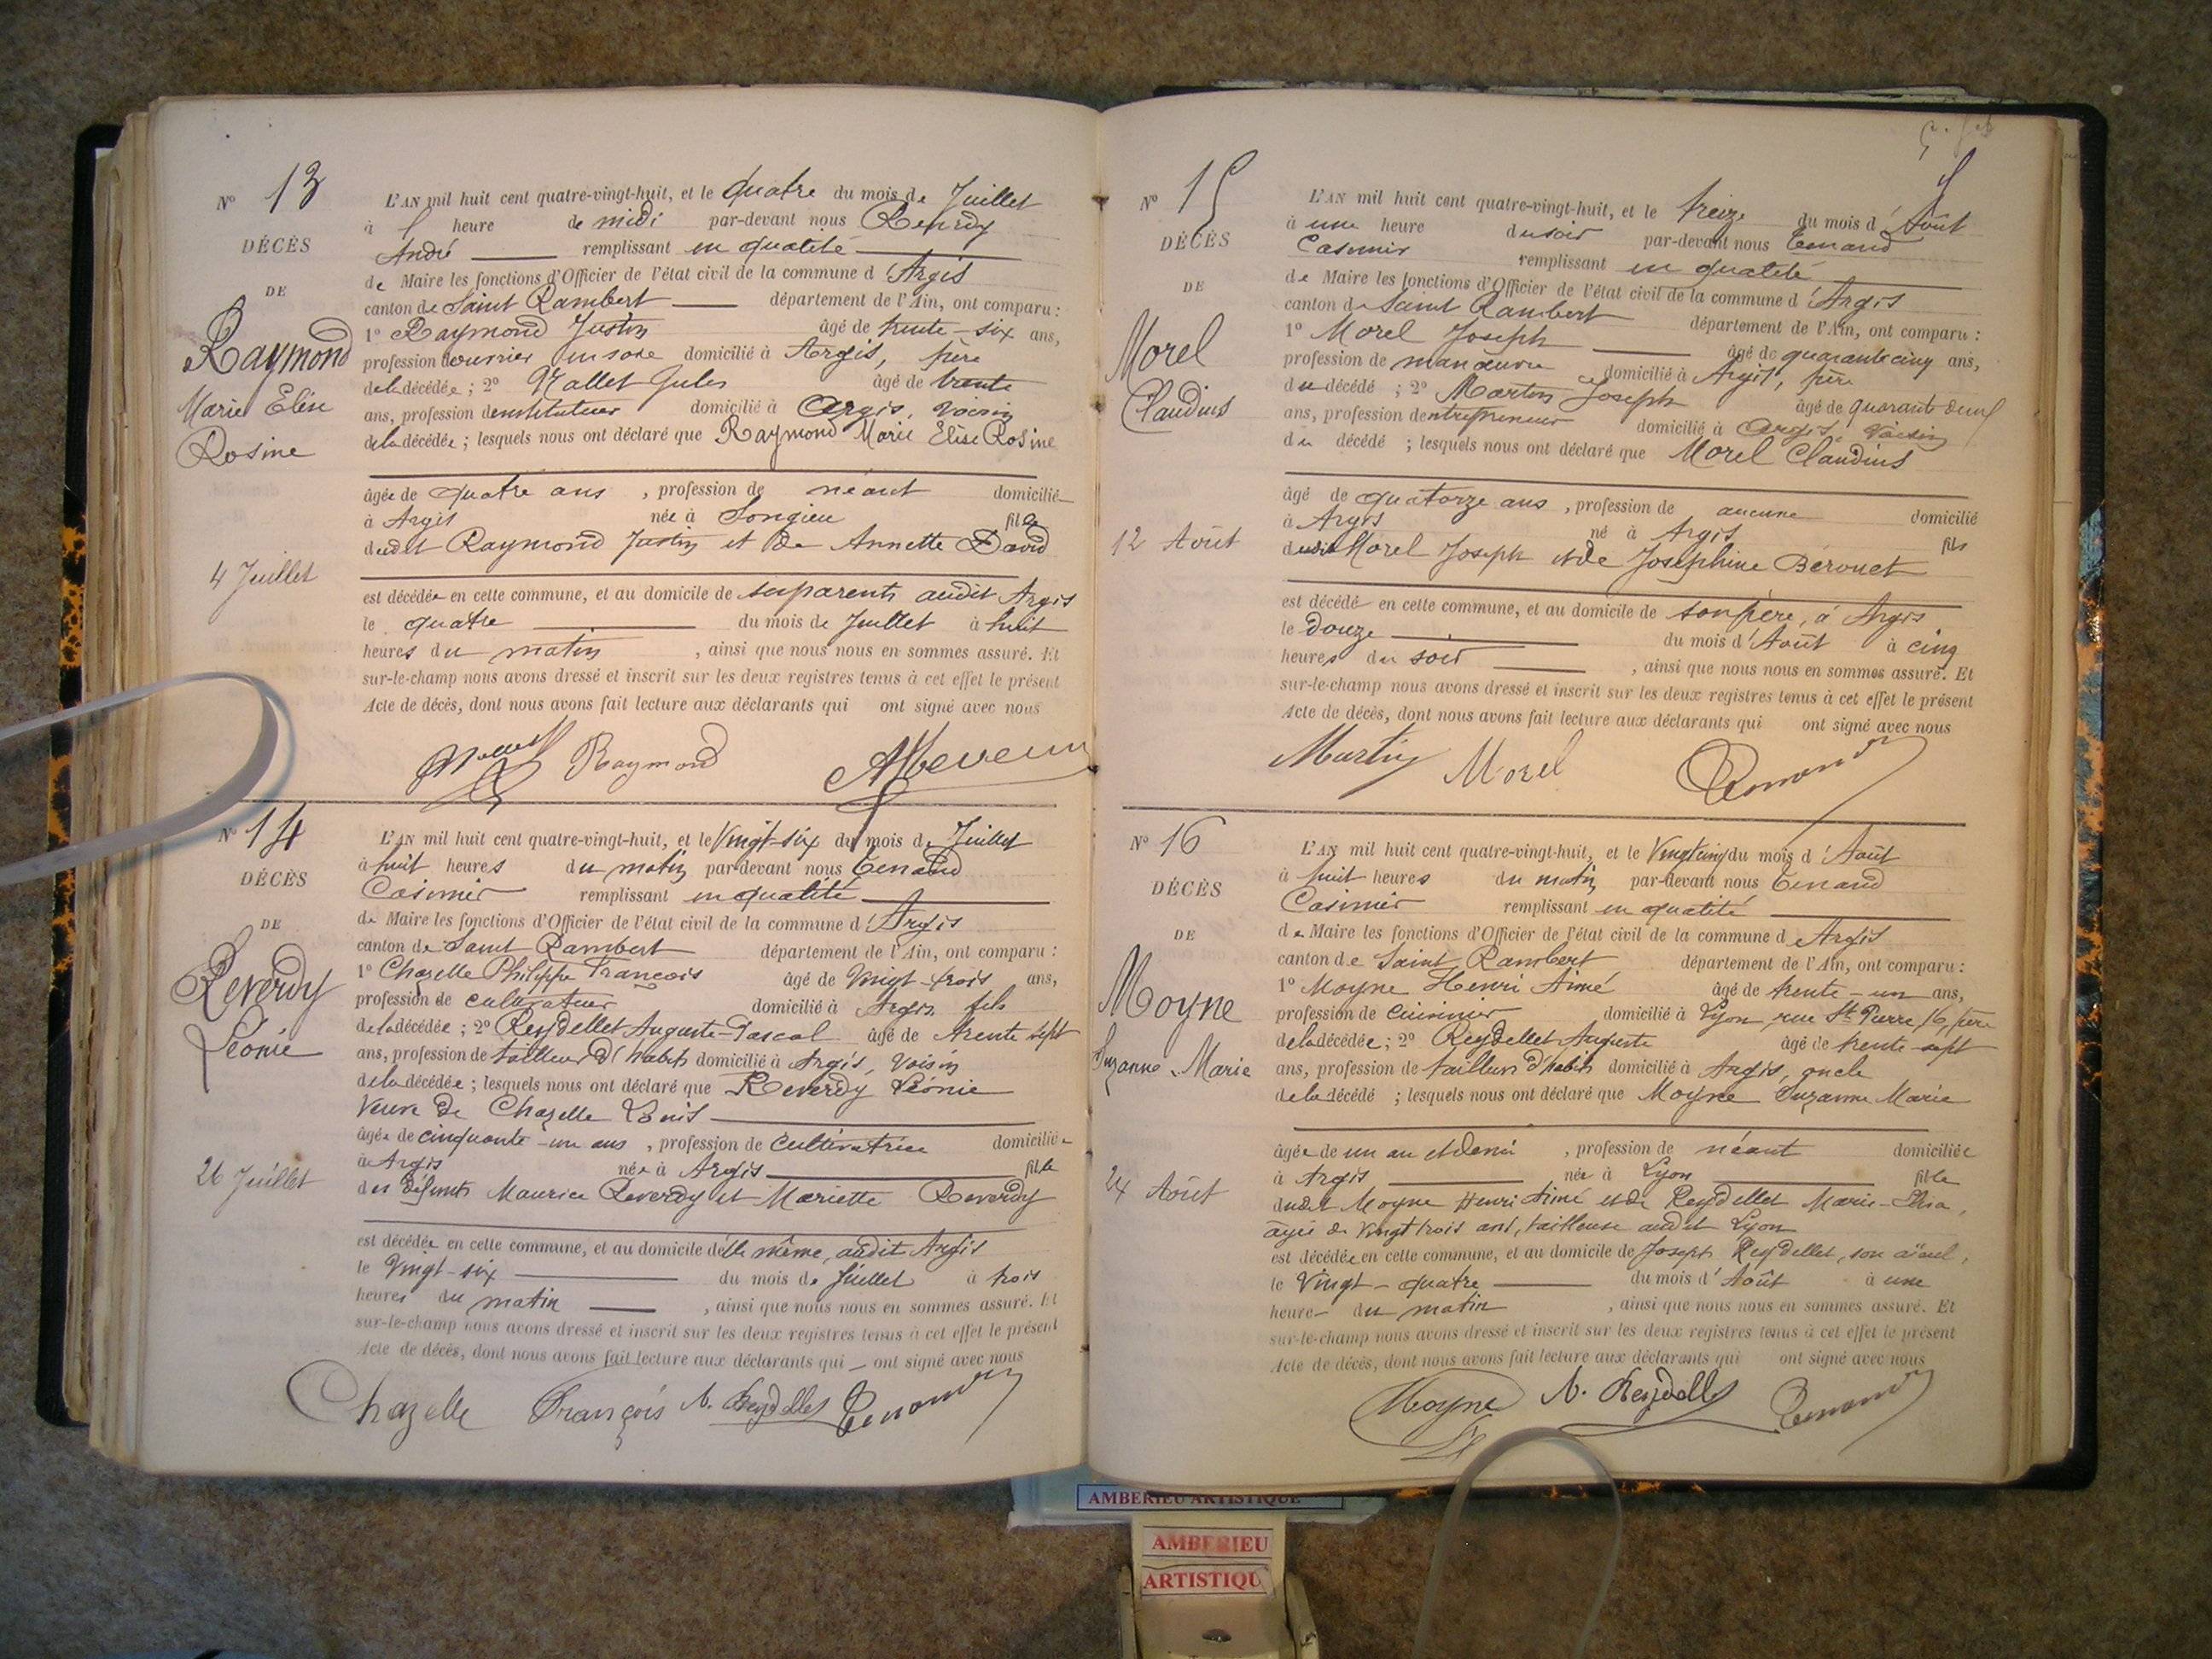 N° 13
DÉCÈS
DE
Raymond
Marie Elise
Rosine
4 Juillet
L'AN mil huit cent quatre-vingt-huit, et le quatre du mois de Juillet
à heure de midi par-devant nous
André remplissant en qualité
de Maire les fonctions d'Officier de l'état civil de la commune d'Argis
canton de Saint Rambert département de l'Ain, ont comparu :
1° Raymond Justin âgé de trente-six ans,
profession d'ouvrier en soie domicilié à Argis, père
de la décédée ; 2° Mallet Jules âgé de trente
ans, profession d'instituteur domicilié à Argis, voisin
de la décédée ; lesquels nous ont déclaré que Raymond Marie Elise Rosine
âgée de quatre ans, profession de néant domiciliée
à Argis née à Songieu fille
dudit Raymond Justin et de Annette David
est décédée en cette commune, et au domicile de ses parents audit Argis
le quatre du mois de Juillet à huit
heures du matin, ainsi que nous nous en sommes assuré. Et
sur-le-champ nous avons dressé et inscrit sur les deux registres tenus à cet effet le présent
Acte de décès, dont nous avons fait lecture aux déclarants qui ont signé avec nous
Raymond
N° 14
DÉCÈS
DE
Reverdy
Léonie
26 Juillet
L'AN mil huit cent quatre-vingt-huit, et le Vingt-six du mois de Juillet
à huit heures du matin par-devant nous Tenand
Casimir remplissant en qualité
de Maire les fonctions d'Officier de l'état civil de la commune d'Argis
canton de Saint Rambert département de l'Ain, ont comparu :
1° Chazelle Philippe François âgé de Vingt-trois ans,
profession de cultivateur domicilié à Argis, fils
de la décédée ; 2° Reydellet Auguste-Pascal âgé de trente sept
ans, profession de tailleur d'habits domicilié à Argis, voisin
de la décédée ; lesquels nous ont déclaré que Reverdy Léonie
Veuve de Chazelle Louis
âgée de cinquante-un ans, profession de Cultivatrice domiciliée
à Argis née à Argis fille
des défunts Maurice Reverdy et Mariette Reverdy
est décédée en cette commune, et au domicile d'elle même, audit Argis
le Vingt-six du mois de Juillet à trois
heures du matin, ainsi que nous nous en sommes assuré. Et
sur-le-champ nous avons dressé et inscrit sur les deux registres tenus à cet effet le présent
Acte de décès, dont nous avons fait lecture aux déclarants qui ont signé avec nous
Chazelle François A. Reydellet Tenand
N° 15
DÉCÈS
DE
Morel
Claudius
12 Août
L'AN mil huit cent quatre-vingt-huit, et le treize du mois d'Août
à une heure du soir par-devant nous Tenand
Casimir remplissant en qualité
de Maire les fonctions d'Officier de l'état civil de la commune d'Argis
canton de Saint Rambert département de l'Ain, ont comparu :
1° Morel Joseph âgé de quarante cinq ans,
profession de manœuvre domicilié à Argis, père
du décédé ; 2° Martin Joseph âgé de quarante deux
ans, profession d'entrepreneur domicilié à Argis, Voisin
du décédé ; lesquels nous ont déclaré que Morel Claudius
âgé de quatorze ans, profession de aucune domicilié
à Argis né à Argis fils
dudit Morel Joseph et de Joséphine Bérouet
est décédé en cette commune, et au domicile de son père, à Argis
le douze du mois d'Août à cinq
heures du soir, ainsi que nous nous en sommes assuré. Et
sur-le-champ nous avons dressé et inscrit sur les deux registres tenus à cet effet le présent
Acte de décès, dont nous avons fait lecture aux déclarants qui ont signé avec nous
Martin Morel Tenand
N° 16
DÉCÈS
DE
Moyne
Suzanne Marie
24 Août
L'AN mil huit cent quatre-vingt-huit, et le Vingt cinq du mois d'Août
à huit heures du matin par-devant nous Tenand
Casimir remplissant en qualité
de Maire les fonctions d'Officier de l'état civil de la commune d Argis
canton de Saint Rambert département de l'Ain, ont comparu :
1° Moyne Henri Aimé âgé de trente-un ans,
profession de cuisinier domicilié à Lyon, rue St Pierre, 16, père
de la décédée ; 2° Reydellet Auguste âgé de trente-sept
ans, profession de tailleur d'habits domicilié à Argis, oncle
de la décédé ; lesquels nous ont déclaré que Moyne Suzanne Marie
âgée de un an et demi, profession de néant domiciliée
à Argis née à Lyon fille
dudit Moyne Henri Aimé et de Reydellet Marie-
âgée de Vingt trois ans, tailleuse audit Lyon
est décédée en cette commune, et au domicile de Joseph Reydellet, son aïeul,
le Vingt-quatre du mois d'Août à une
heure du matin, ainsi que nous nous en sommes assuré. Et
sur-le-champ nous avons dressé et inscrit sur les deux registres tenus à cet effet le présent
Acte de décès, dont nous avons fait lecture aux déclarants qui ont signé avec nous
Moyne A. Reydellet Tenand
AMBERIEU ARTISTIQUE
AMBERIEU
ARTISTIQU